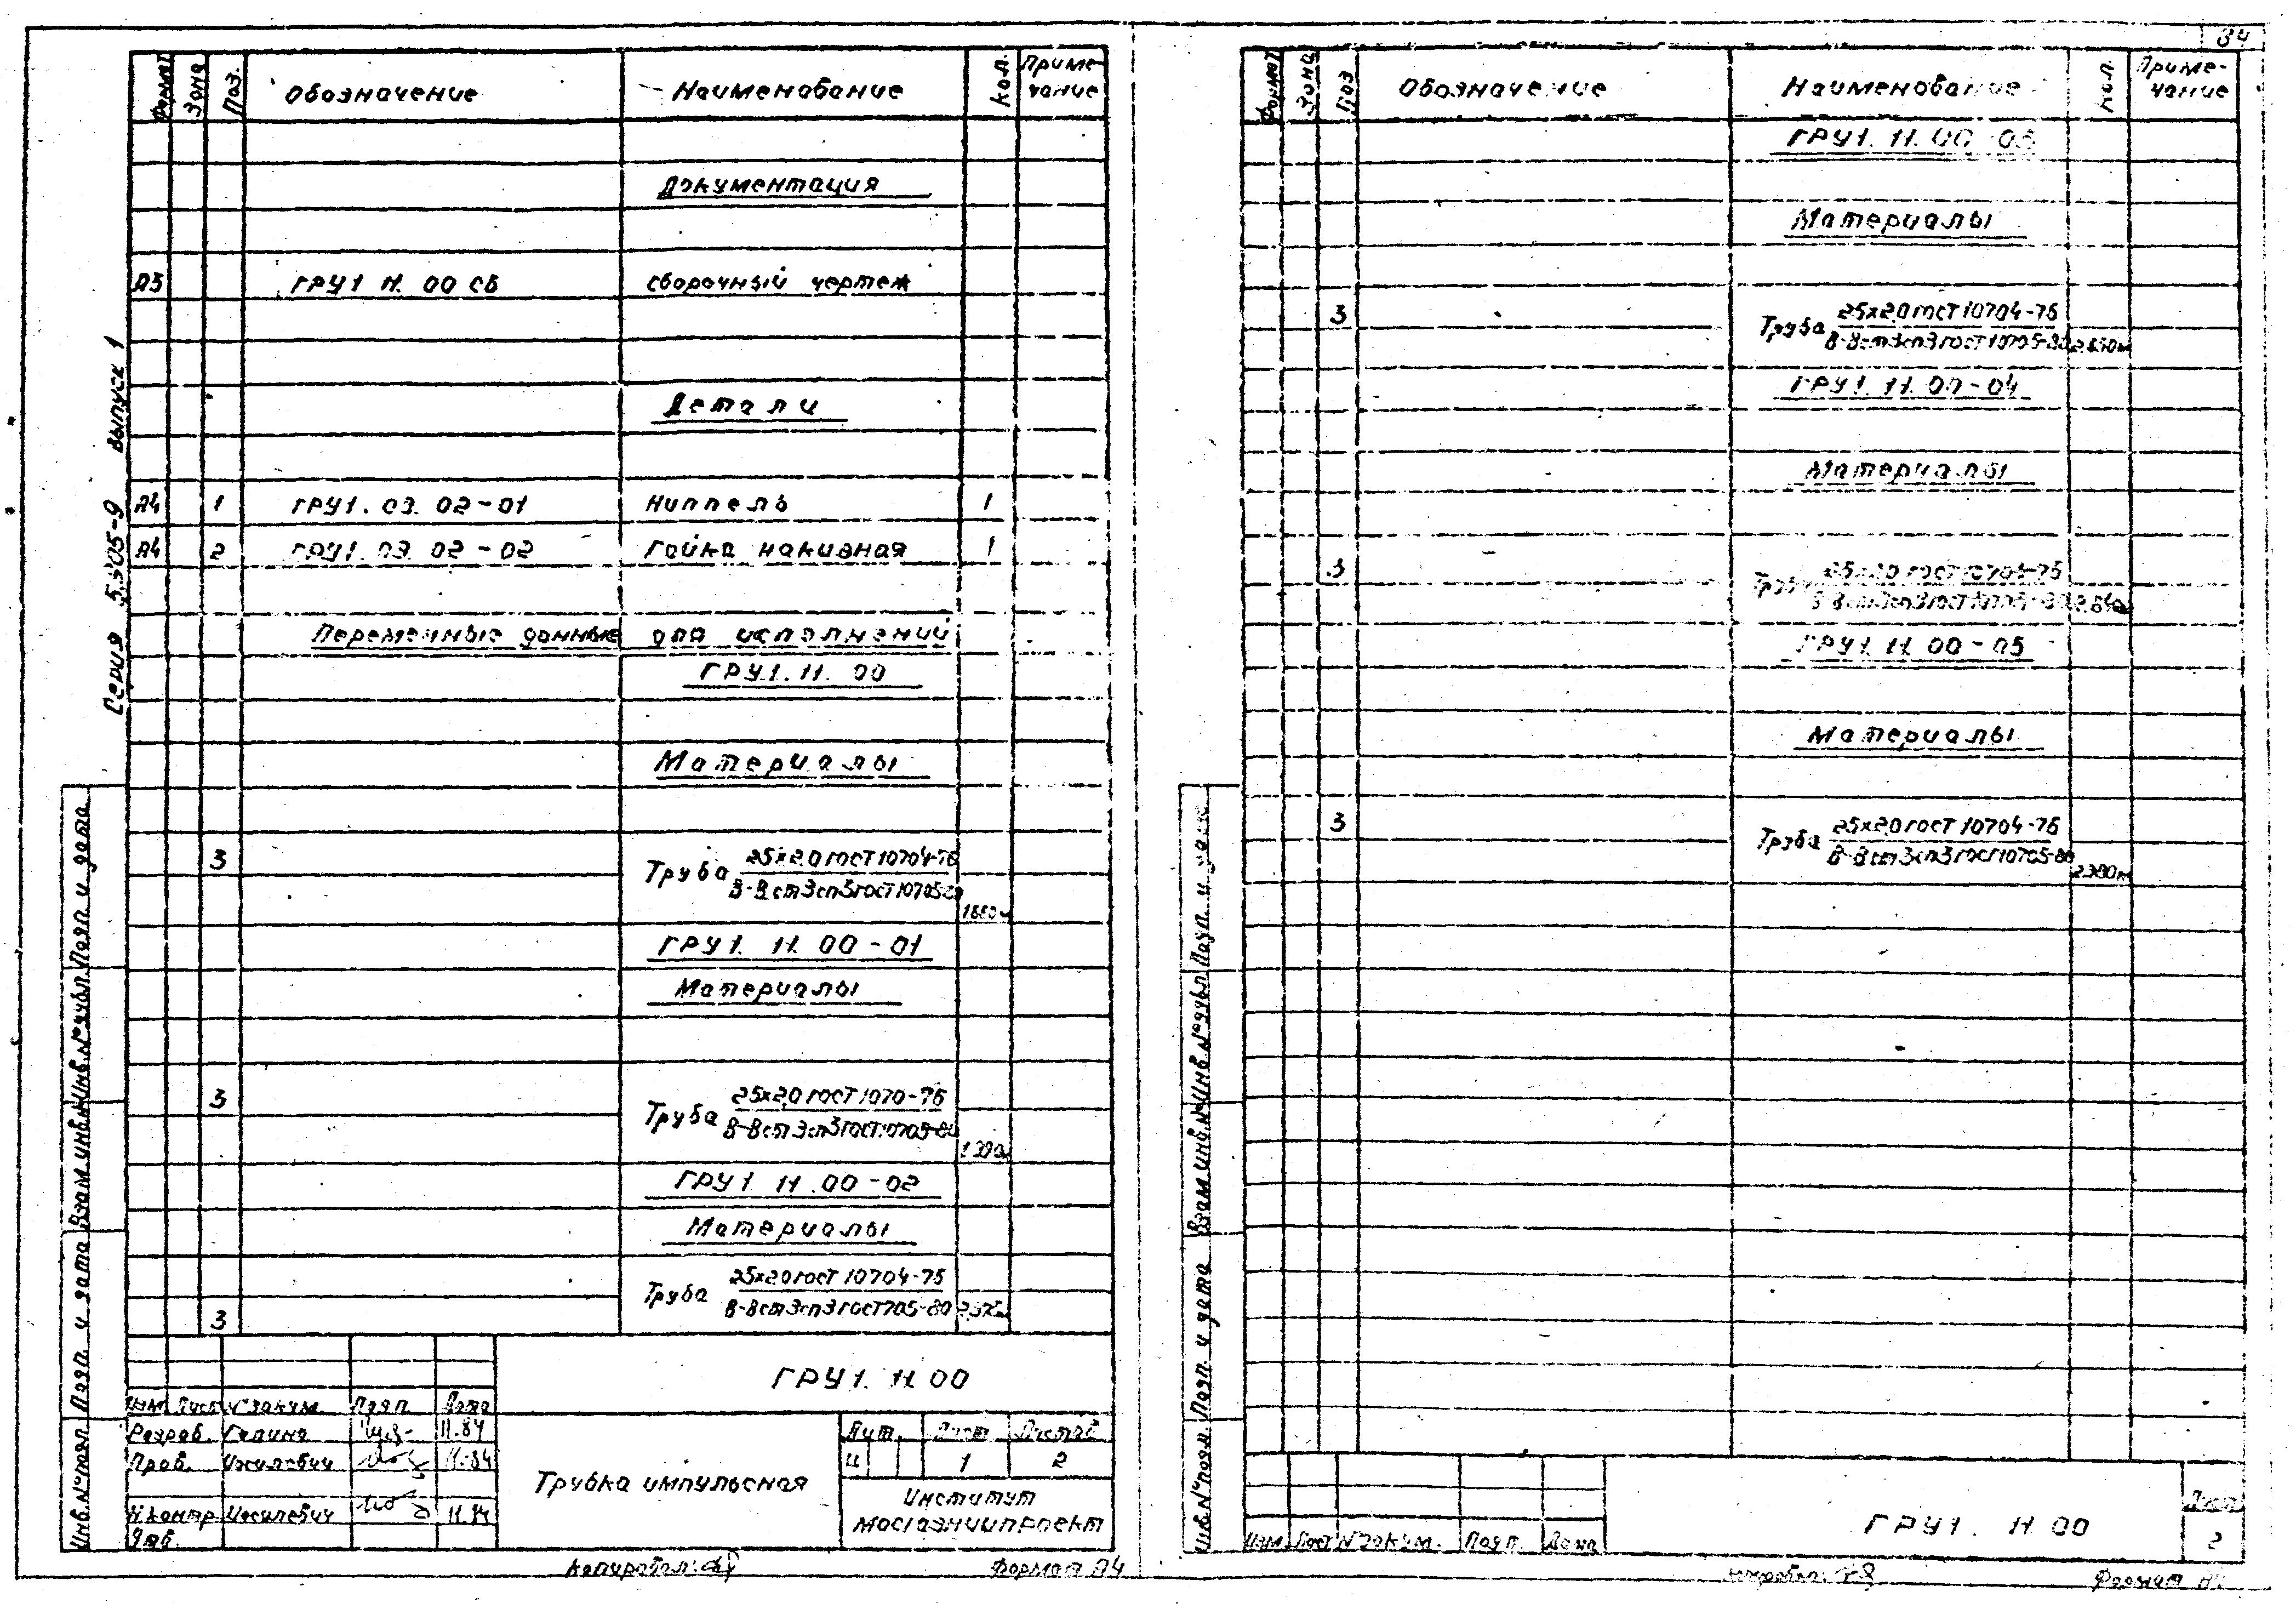 34
Серия 5.905-9 выпуск 1
Формат Зона Поз. Обозначение Наименование Кол. Приме-
чание
Документация
А3 ГРУ1 11. 00 СБ сборочный чертеж
Детали
А4 1 ГРУ1. 03. 02-01 Ниппель 1
А4 2 ГРУ1. 03. 02-02 Гайка накидная 1
Переменные данные для исполнений
ГРУ1. 11. 00
Материалы
3 Труба 25х2.0 гост 10704-76
В-Вст3сп3 гост 10705-80
ГРУ1. 11. 00-01
Материалы
3 Труба 25х2,0 гост 1070-76
В-Вст3сп3 гост 10705-80
ГРУ1 11. 00-02
Материалы
Труба 25х2.0 гост 10704-76
3 В-Вст3сп3 гост 705-80
ГРУ1. 11 00
Изм Лист № докум. Подп. Дата
Разраб. Галина 11.84
Пров. 11.84
Н.контр 11.84
Утв.
Трубка импульсная
Лит. Лист Листов
И 1 2
Институт
Мосгазниипроект
Копировал:
Формат А4
Инв.№ подл. Подп. и дата Взам.инв.№ Инв.№ дубл. Подп. и дата
Формат Зона Поз Обозначение Наименование Кол. Приме-
чание
ГРУ1. 11. 00-03
Материалы
3 Труба 25х2,0 гост 10704-76
В-Вст3сп3 гост 10705-80
ГРУ1. 11. 00-04
Материалы
3 Труба 25х2.0 гост 10704-76
В-Вст3сп3 гост 10705-80
ГРУ1. 11. 00-05
Материалы
3 Труба 25х2.0 гост 10704-76
В-Вст3сп3 гост 10705-80
Изм Лист № докум. Подп. Дата
ГРУ1. 11 00
Лист
2
Формат А4
Инв.№ подл. Подп. и дата Взам.инв.№ Инв.№ дубл. Подп. и дата